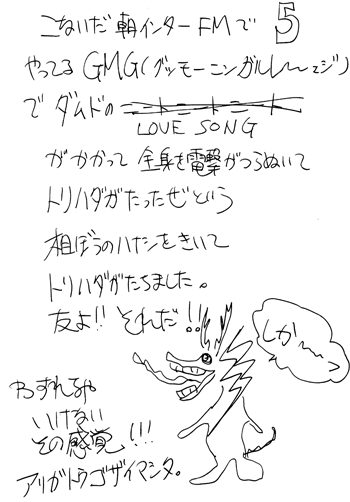 こないだ朝インターFMで 5
やってるGMG(グッモーニンガルレ〜ジ)
でダムドの
LOVE SONG
がかかって全身を電撃がつらぬいて
トリハダがたったぜという
相ぼうのハナシをきいて
トリハダがたちました。
友よ!!それだ!!
しか〜〜
わすれちゃ
いけない
その感覚!!!
アリガトウゴザイマシタ。